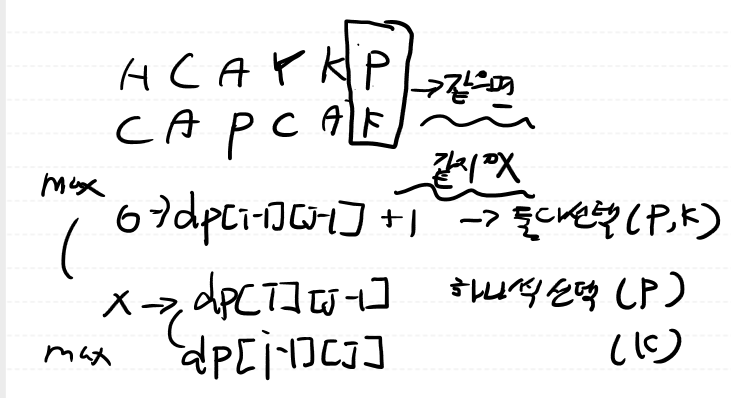 A C A Y K P
C A P C A K → 같으면
같지 X
max
O → dp[i-1][j-1] + 1 → 둘다선택(P,K)
X → dp[i][j-1] 하나씩선택 (P)
max dp[i-1][j] (K)